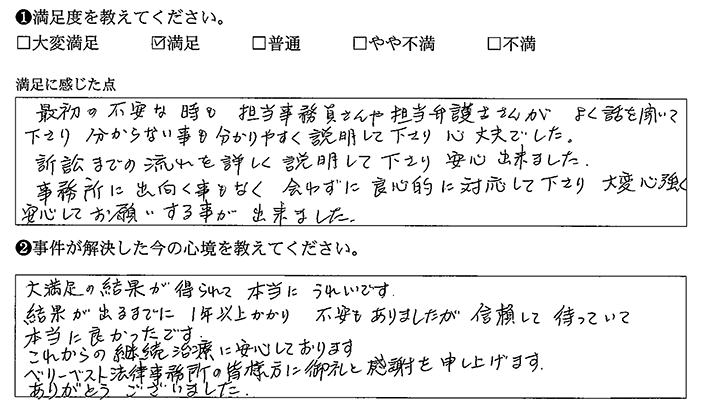 ❶満足度を教えてください。
□大変満足 ☑満足 □普通 □やや不満 □不満
満足に感じた点
最初の不安な時も 担当事務員さんや担当弁護士さんが よく話を聞いて
下さり 分からない事も分かりやすく説明して下さり 心丈夫でした。
訴訟までの流れを詳しく説明して下さり 安心出来ました.
事務所に出向く事もなく 会わずに良心的に対応して下さり 大変心強く
安心してお願いする事が 出来ました.
❷事件が解決した今の心境を教えてください。
大満足の結果が得られて 本当に うれしいです.
結果が出るまでに 1年以上かかり 不安もありましたが 信頼して 待っていて
本当に良かったです.
これからの継続治療に安心しております
ベリーベスト法律事務所の皆様方に御礼と感謝を申し上げます.
ありがとう ございました.